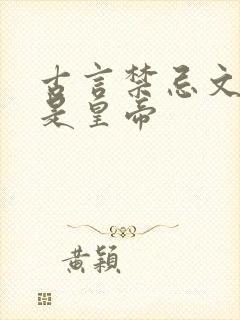 古言禁忌文
是皇帝
黄颖